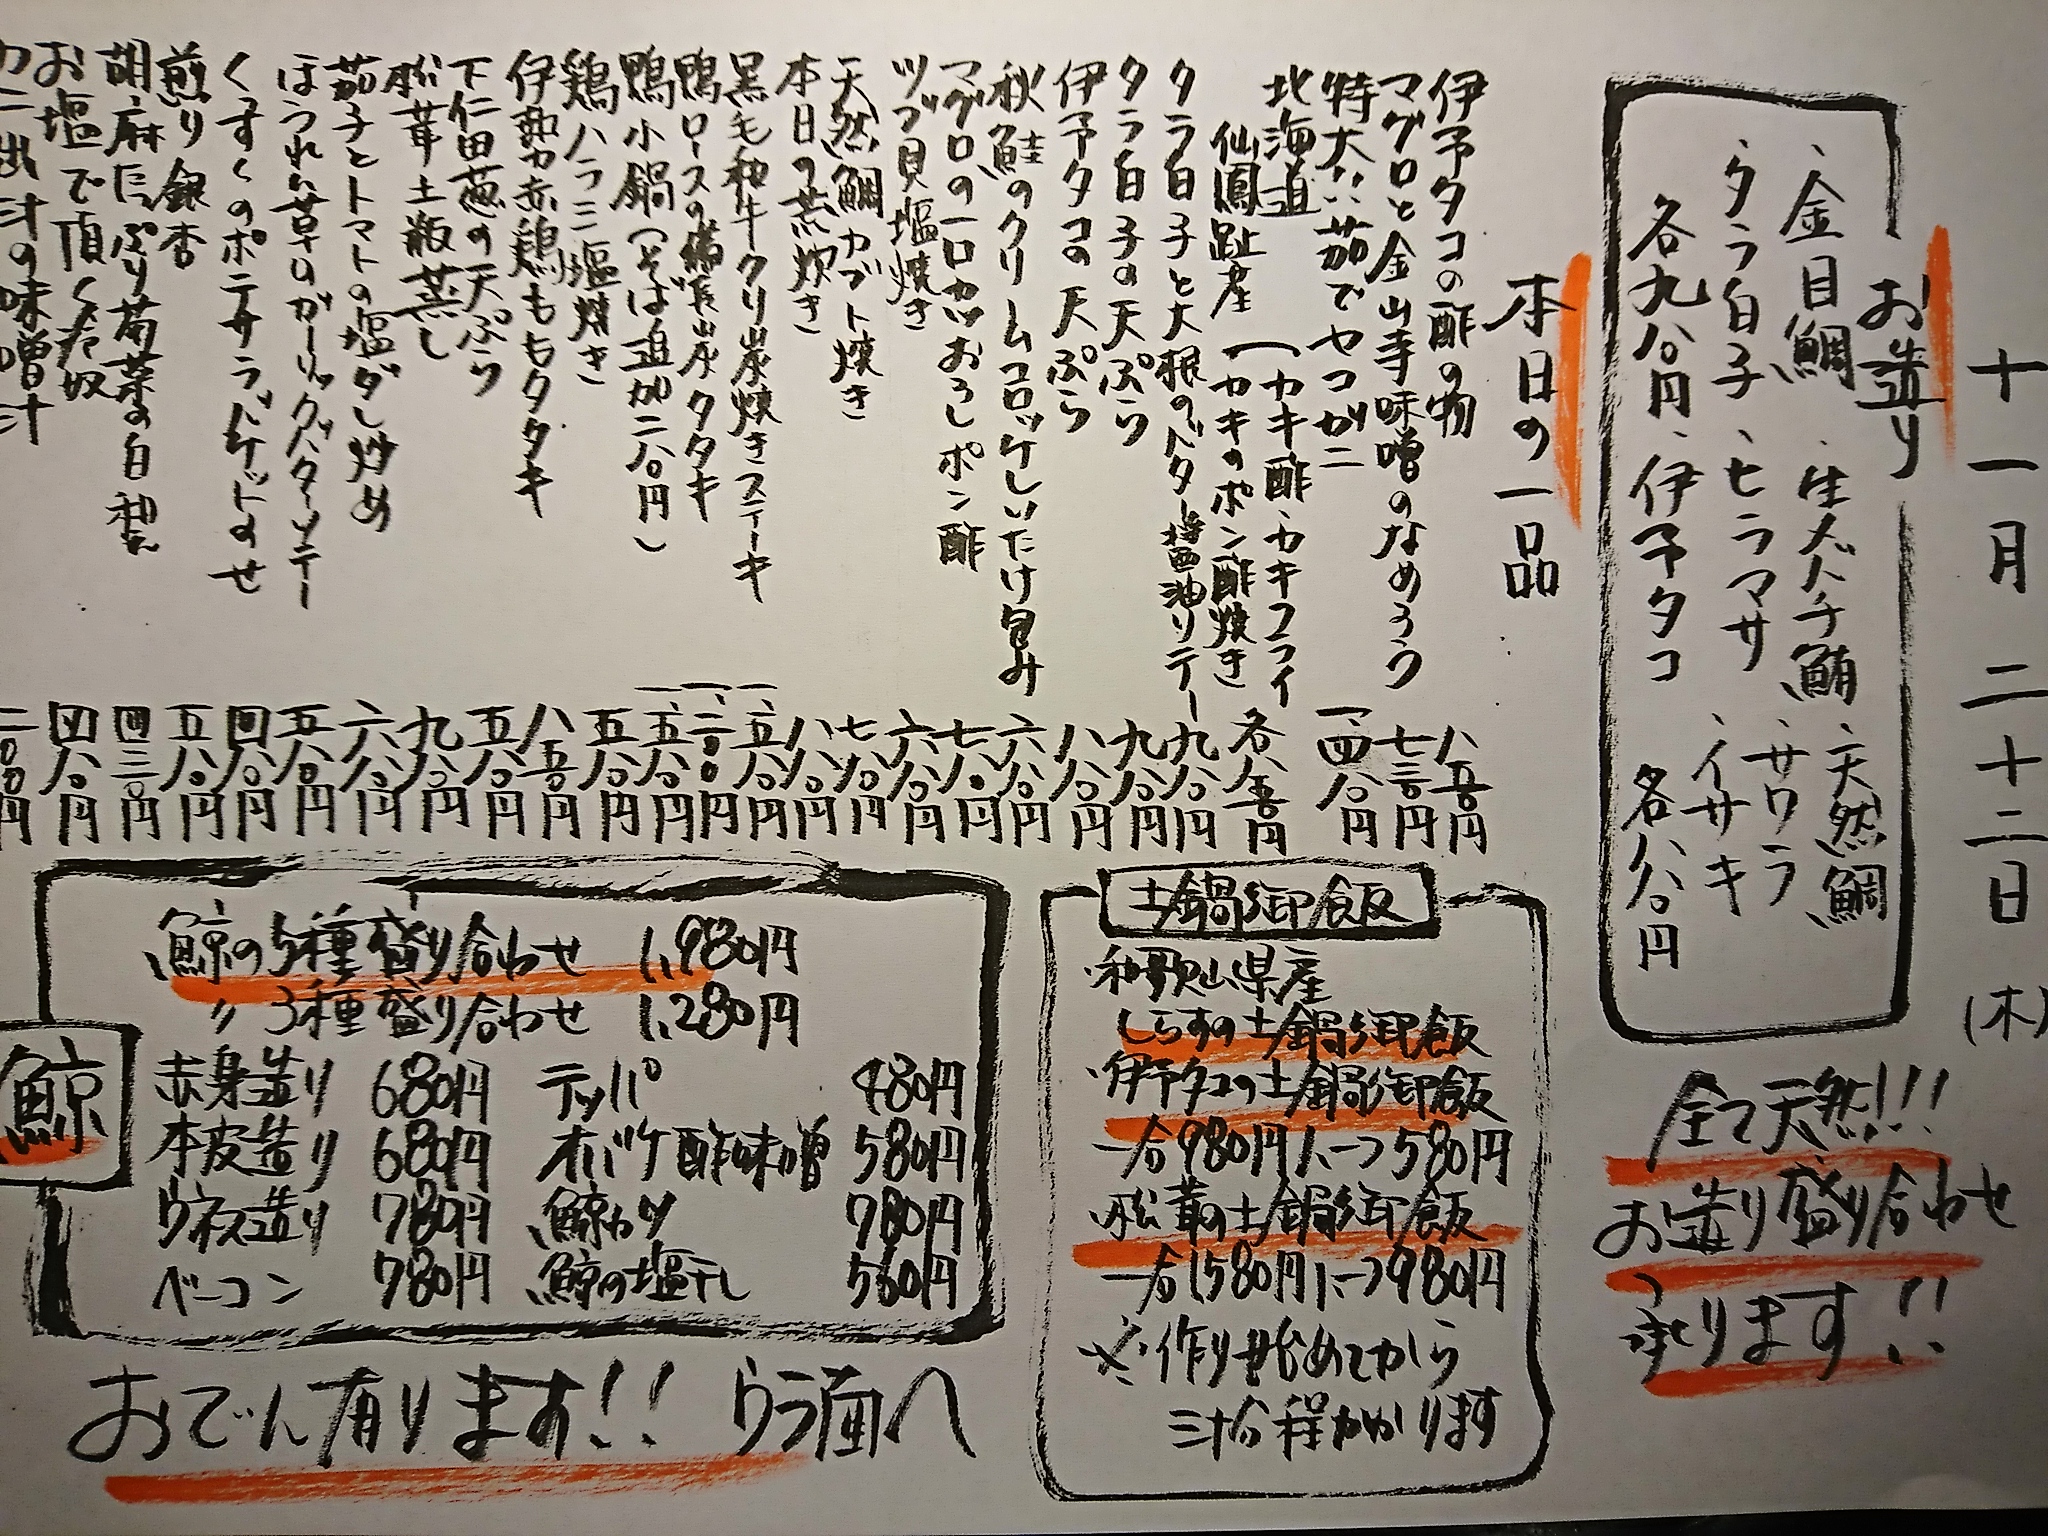 十一月二十二日(木)
お造り
、金目鯛 、生メバチ鮪 、天然鯛
、タラ白子 、ヒラマサ 、サワラ 、イサキ
各九八〇円 、伊予タコ 各八八〇円
全て天然!!!
お造り盛り合わせ
承ります!!
本日の一品
伊予タコの酢の物 八五〇円
マグロと金山寺味噌のなめろう 七三〇円
特大!!茹でセコガニ 一、四八〇円
北海道 仙鳳趾産 (カキ酢、カキフライ
カキのポン酢焼き 各八五〇円
タラ白子と大根のバター醤油ソテー 九八〇円
タラ白子の天ぷら 九八〇円
伊予タコの天ぷら 八八〇円
秋鮭のクリームコロッケしいたけ包み 六八〇円
マグロの一口カツおろしポン酢 七八〇円
ツブ貝塩焼き 六八〇円
天然鯛カブト焼き 七八〇円
本日の荒炊き 八八〇円
黒毛和牛クリ炭焼きステーキ 一、五八〇円
鴨ロースの備長炭タタキ 一、二〇〇円
鴨小鍋(そば追加二八〇円) 一、五八〇円
鶏ハラミ塩焼き 五八〇円
伊勢赤鶏ももタタキ 八五〇円
下仁田葱の天ぷら 五八〇円
松茸土瓶蒸し 九八〇円
茄子とトマトの塩ダレ炒め 六八〇円
ほうれん草のガーリックバターソテー 五八〇円
くずくのポテサラバゲットのせ 四八〇円
煎り銀杏 五八〇円
胡麻たっぷり菊菜の白和え 四三〇円
お塩で頂く冷奴 四八〇円
カニ出汁の味噌汁 二〇〇円
土鍋御飯
、和歌山県産
しらすの土鍋御飯
、伊予タコの土鍋御飯
一合980円1、一つ580円
、松茸の土鍋御飯
一合1580円1、一つ980円
※作り始めてから
三十分程かかります
鯨
、鯨の5種盛り合わせ 1,980円
〃 3種盛り合わせ 1,280円
赤身造り 680円 テッパ 480円
本皮造り 680円 オバケ酢味噌 580円
ウネス造り 780円 鯨カツ 780円
ベーコン 780円 鯨の塩干し 560円
おでん有ります!! ウラ面へ